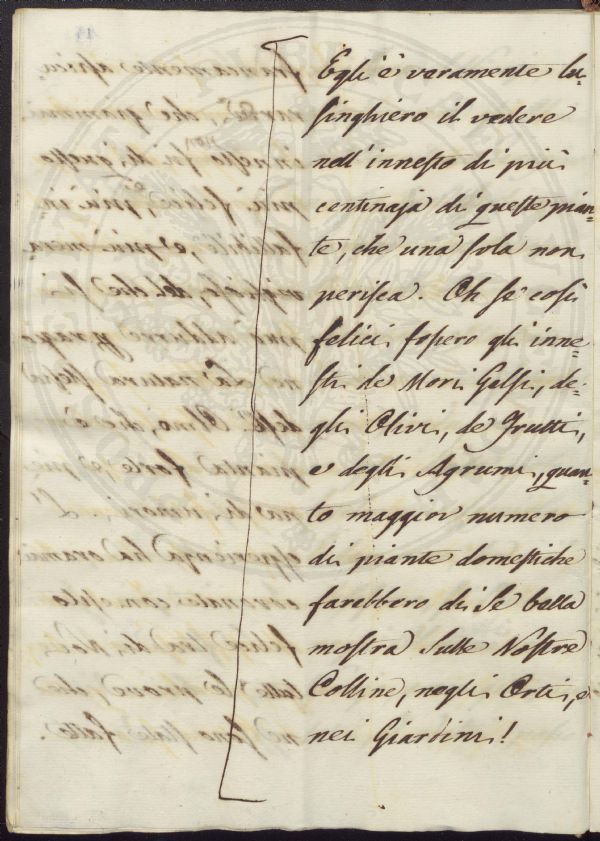 Egli è veramente lu-
singhiero il vedere
nell'innesto di più
centinaja di queste pian-
te, che una sola non
perisca. Oh se così
felici fossero gl'inne-
sti de Mori Gelsi, de-
gli Olivi, de Frutti,
e degli Agrumi, quan-
to maggior numero
di piante domestiche
farebbero di Sé bella
mostra Sulle Nostre
Colline, negli Orti, e
nei Giardini!